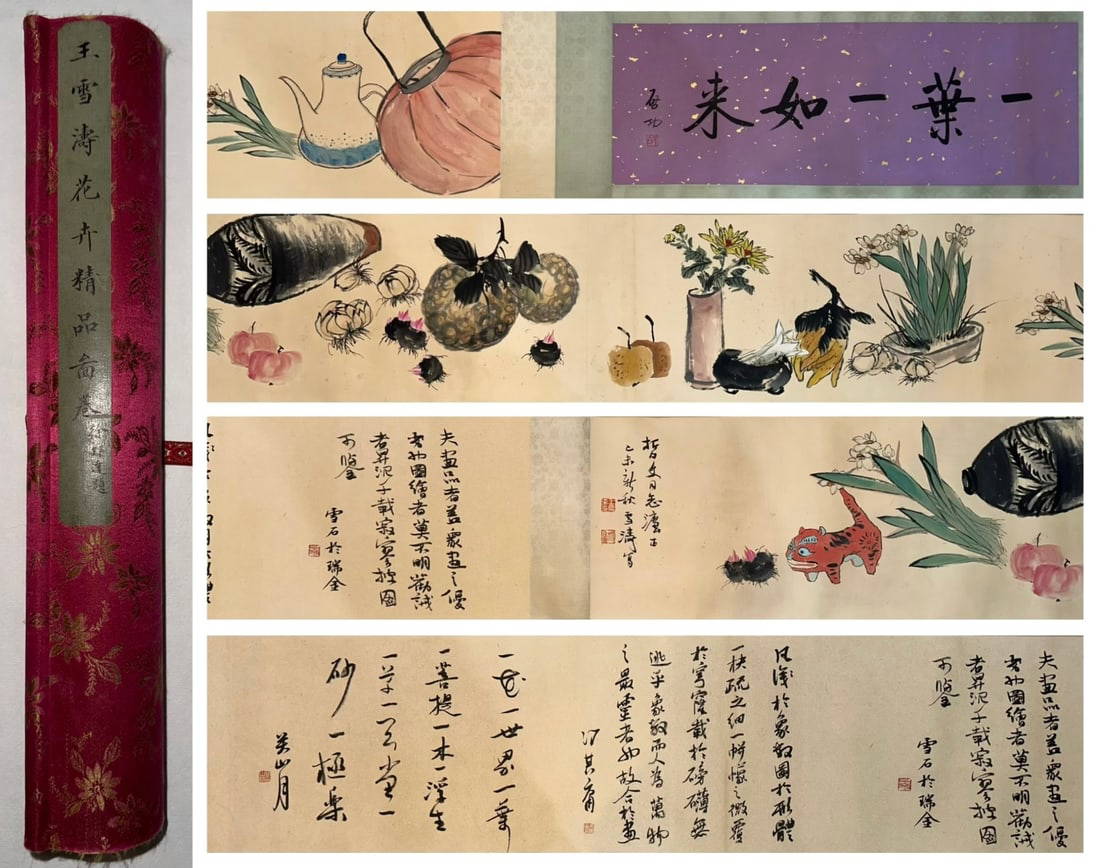 王雪濤花卉精品啚卷
一葉一如来
启功
哲文同志灋正
己未新秋雪濤寫
夫畫品者蓋眾畫之優
劣也圖繪者莫不明勸誡
著昇沉千載寂寥披圖
可鑒
雪石於瑞金
夫畫品者蓋眾畫之優
劣也圖繪者莫不明勸誡
著昇沉千載寂寥披圖
可鑒
雪石於瑞金
凡淺於象數圖於形體
一扶疏之細一帡幪之微覆
於穹窿載於磅礴無
逃乎象數而人為萬物
之最靈者也故合於畫
馮其庸
一花一世界一葉
一菩提一木一浮生
一草一天堂一
砂一極樂
关山月